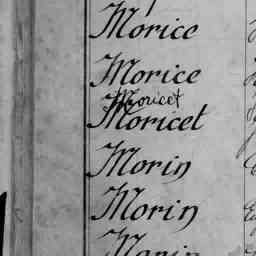 Morice
Morice
Moricet
Moricet
Morin
Morin
Morin